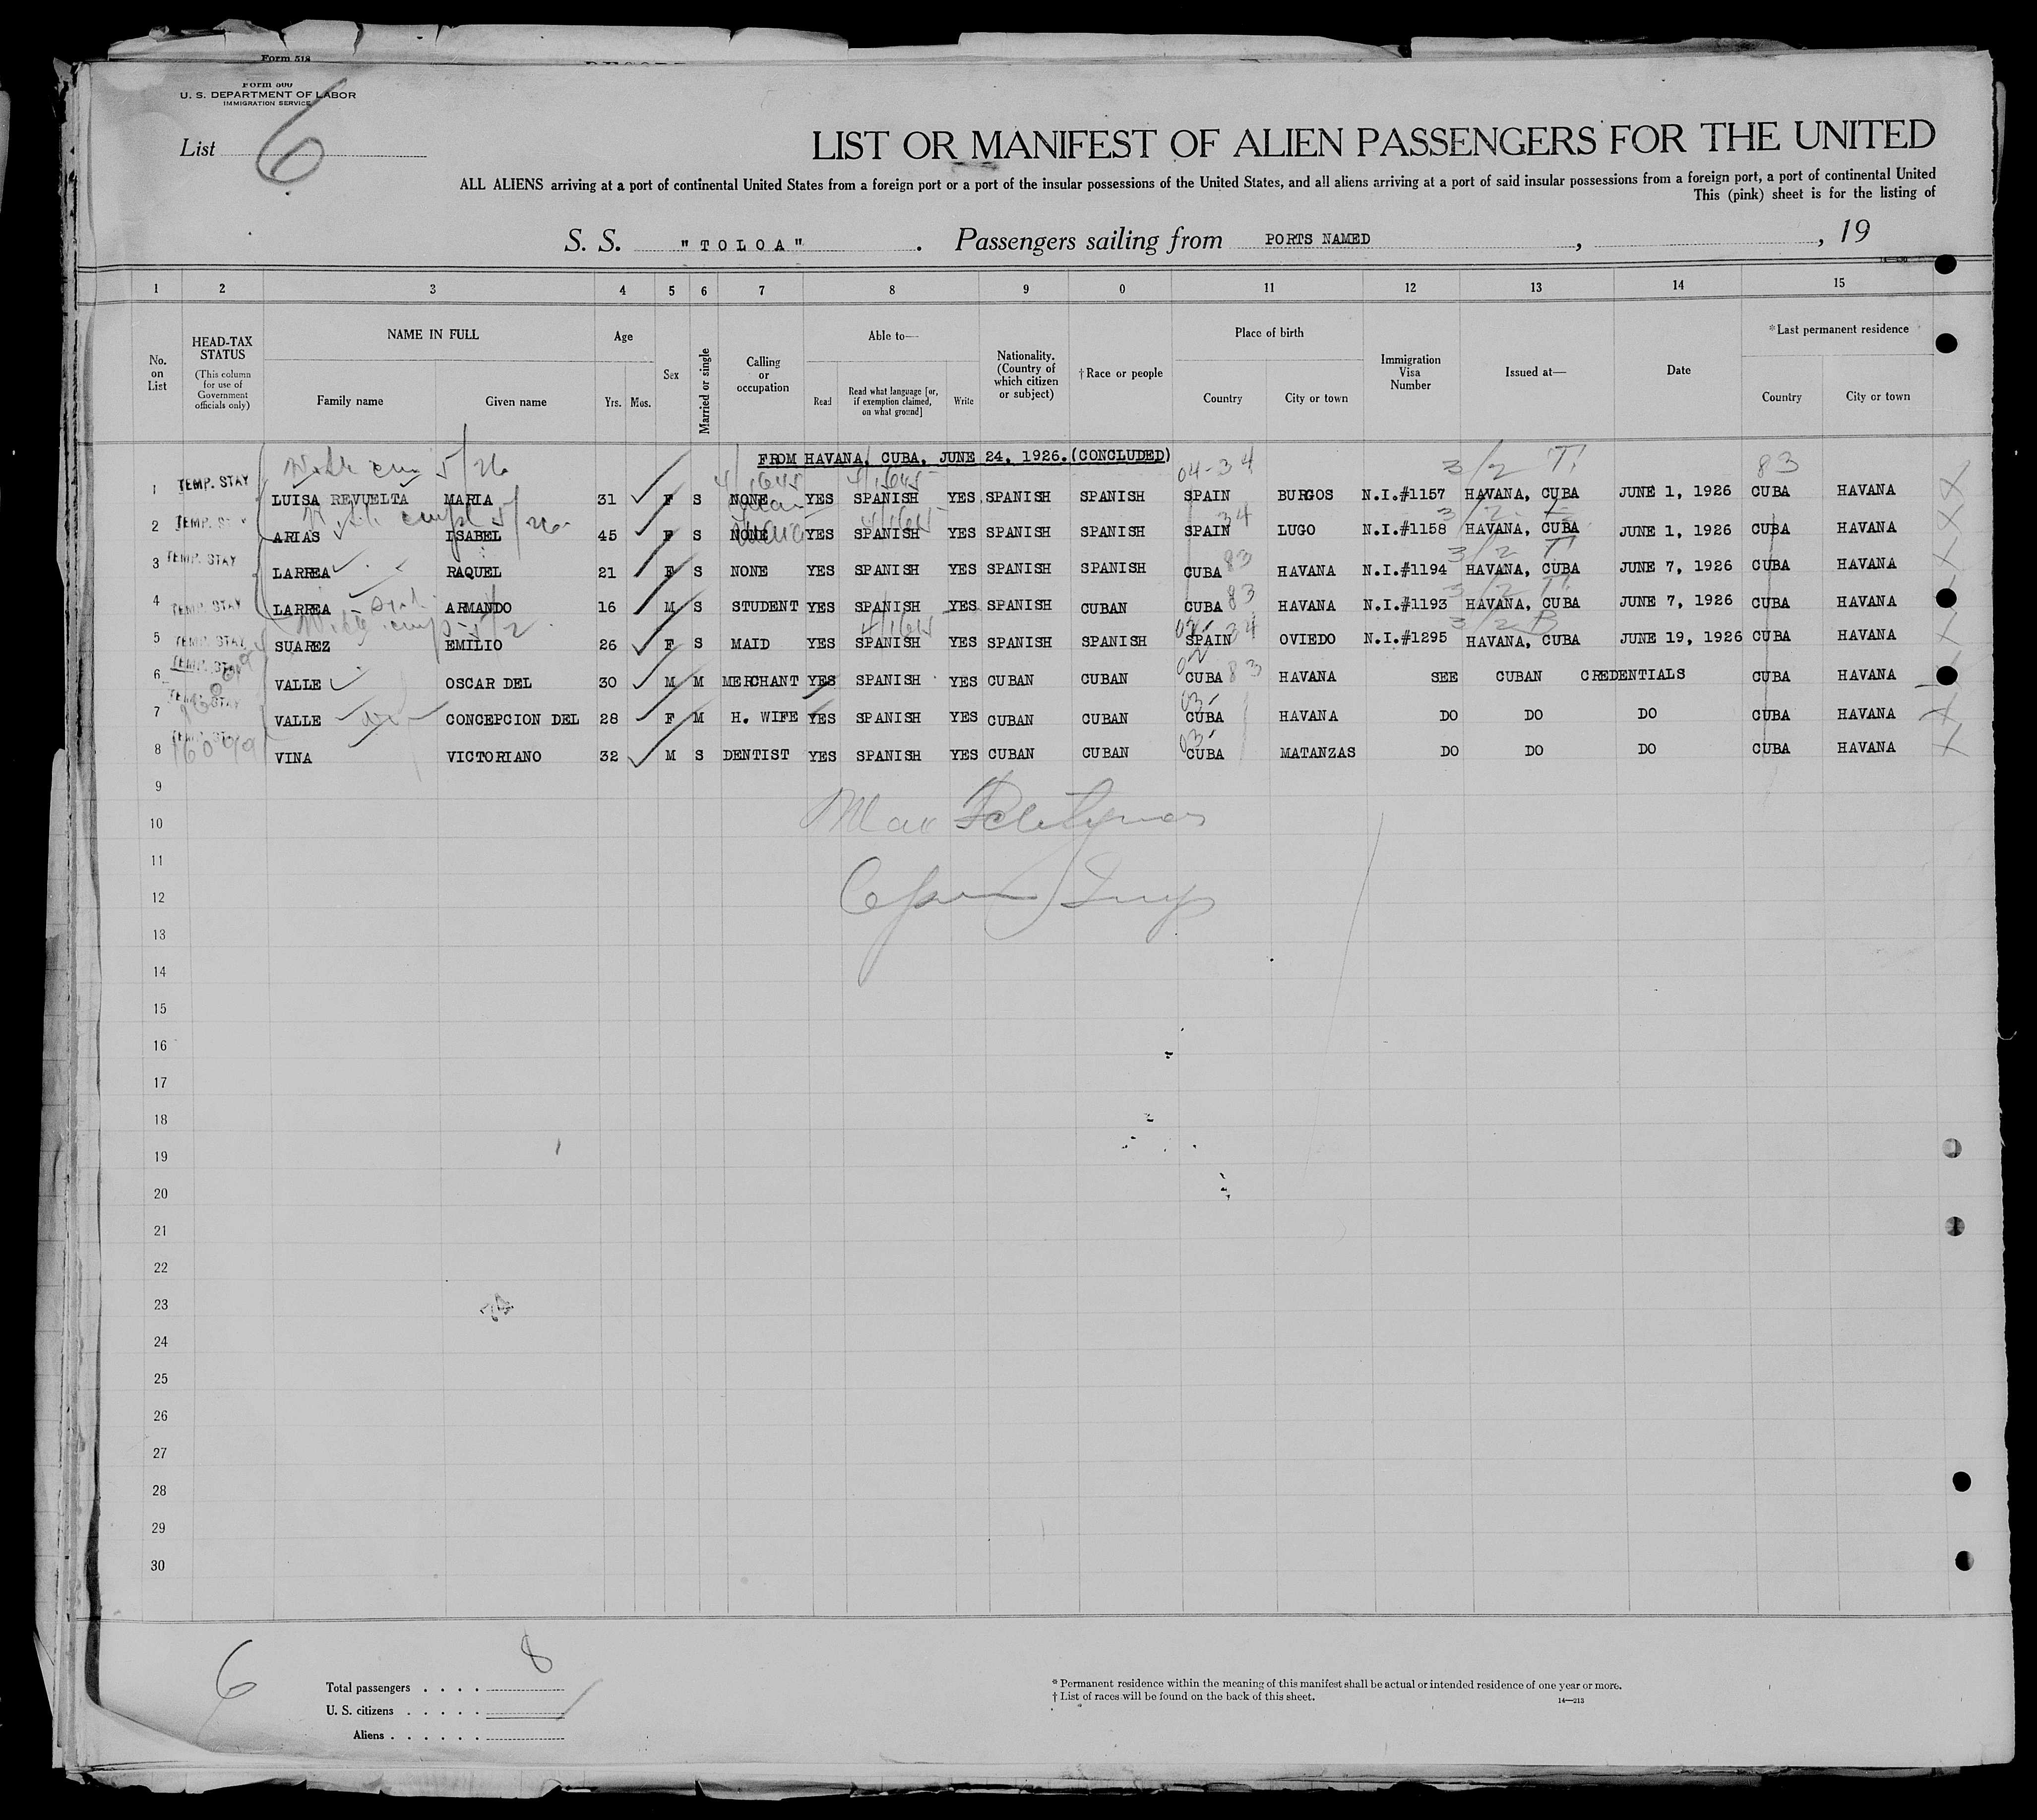 Form 518
Form 500
U. S. DEPARTMENT OF LABOR
IMMIGRATION SERVICE
List 6
LIST OR MANIFEST OF ALIEN PASSENGERS FOR THE UNITED
ALL ALIENS arriving at a port of continental United States from a foreign port or a port of the insular possessions of the United States, and all aliens arriving at a port of said insular possessions from a foreign port, a port of continental United
This (pink) sheet is for the listing of
S. S. "TOLOA" . Passengers sailing from PORTS NAMED , , 19
1 2 3 4 5 6 7 8 9 0 11 12 13 14 15
No. on List
HEAD-TAX STATUS (This column for use of Government officials only)
NAME IN FULL
Family name Given name
Age
Yrs. Mos.
Sex
Married or single
Calling or occupation
Able to—
Read Read what language [or, if exemption claimed, on what ground] Write
Nationality. (Country of which citizen or subject)
†Race or people
Place of birth
Country City or town
Immigration Visa Number
Issued at—
Date
*Last permanent residence
Country City or town
FROM HAVANA, CUBA, JUNE 24, 1926.(CONCLUDED)
04-34 3/2 T! 83
1 TEMP. STAY LUISA REVUELTA MARIA 31 F S NONE YES SPANISH YES SPANISH SPANISH SPAIN BURGOS N.I.#1157 HAVANA, CUBA JUNE 1, 1926 CUBA HAVANA
2 TEMP. STAY ARIAS ISABEL 45 F S NONE YES SPANISH YES SPANISH SPANISH SPAIN 34 LUGO N.I.#1158 HAVANA, CUBA JUNE 1, 1926 CUBA HAVANA
3 TEMP. STAY LARREA RAQUEL 21 F S NONE YES SPANISH YES SPANISH SPANISH CUBA 83 HAVANA N.I.#1194 HAVANA, CUBA JUNE 7, 1926 CUBA HAVANA
4 TEMP. STAY LARREA ARMANDO 16 M S STUDENT YES SPANISH YES SPANISH CUBAN CUBA 83 HAVANA N.I.#1193 HAVANA, CUBA JUNE 7, 1926 CUBA HAVANA
5 TEMP. STAY SUAREZ EMILIO 26 F S MAID YES SPANISH YES SPANISH SPANISH SPAIN 34 OVIEDO N.I.#1295 HAVANA, CUBA JUNE 19, 1926 CUBA HAVANA
6 TEMP. STAY VALLE OSCAR DEL 30 M M MERCHANT YES SPANISH YES CUBAN CUBAN CUBA 83 HAVANA SEE CUBAN CREDENTIALS CUBA HAVANA
7 TEMP. STAY VALLE CONCEPCION DEL 28 F M H. WIFE YES SPANISH YES CUBAN CUBAN CUBA HAVANA DO DO DO CUBA HAVANA
8 VINA VICTORIANO 32 M S DENTIST YES SPANISH YES CUBAN CUBAN CUBA MATANZAS DO DO DO CUBA HAVANA
9
10
11
12
13
14
15
16
17
18
19
20
21
22
23
24
25
26
27
28
29
30
6
8
Total passengers . . . .
U. S. citizens . . . . .
Aliens . . . . . .
* Permanent residence within the meaning of this manifest shall be actual or intended residence of one year or more.
† List of races will be found on the back of this sheet.
14—213